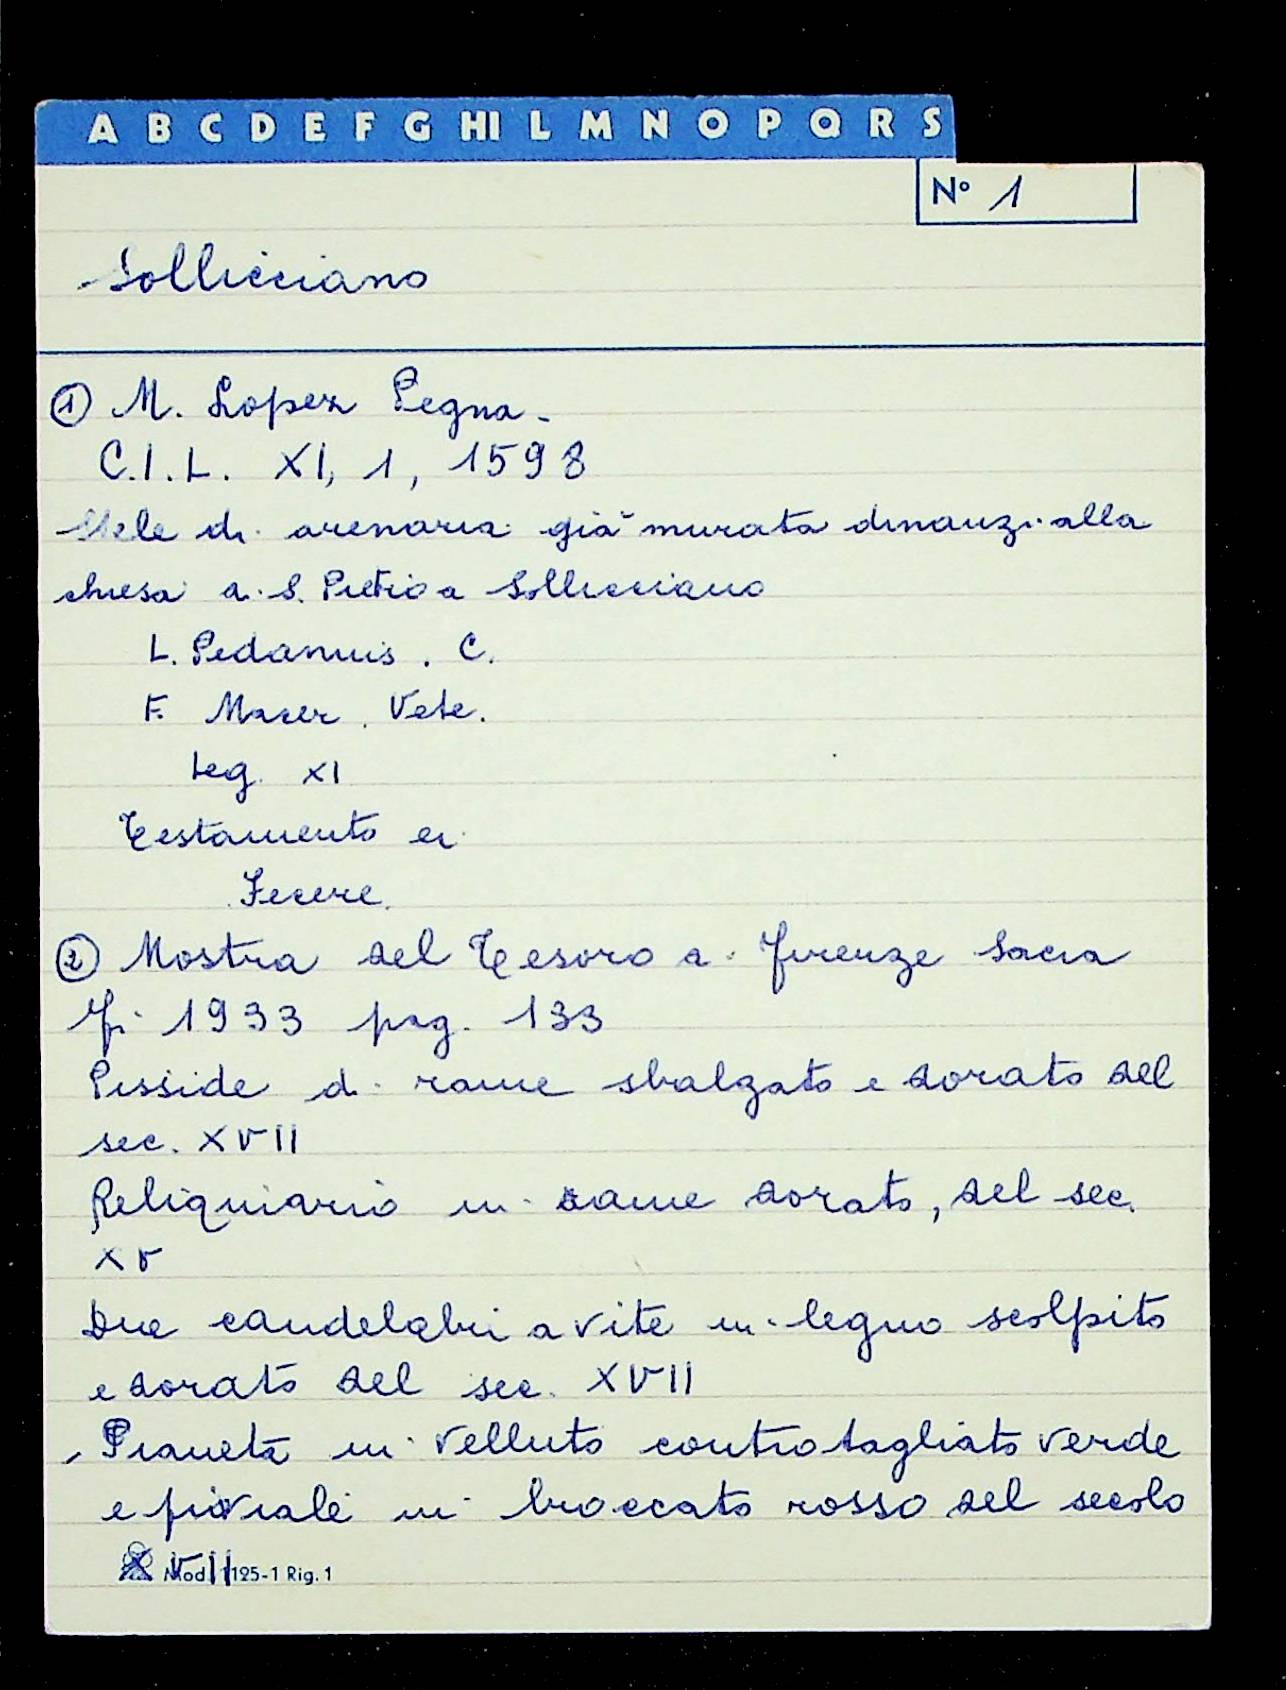 A B C D E F G HI L M N O P Q R S
N° 1
Sollicciano
① M. Lopez Pegna.
C.I.L. XI, 1, 1598
Stele di arenaria già murata dinanzi alla
chiesa di S. Pietro a Sollicciano
L. Pedanius . C.
F. Macer . Vete.
Leg. XI
Testamento ei
Fecere.
② Mostra del Tesoro di Firenze Sacra
Fi 1933 pag. 133
Pisside di rame sbalzato e dorato del
sec. XVII
Reliquiario in rame dorato, del sec.
XV
Due candelabri a vite in legno scolpito
e dorato del sec. XVII
Pianeta in velluto controtagliato verde
e piviale in broccato rosso del secolo
XVII
Mod. 1125-1 Rig. 1